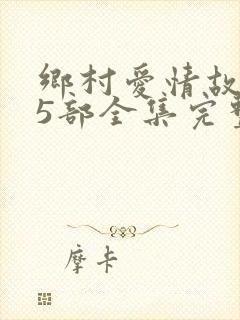 鄉村愛情故
5部全集完整
摩卡